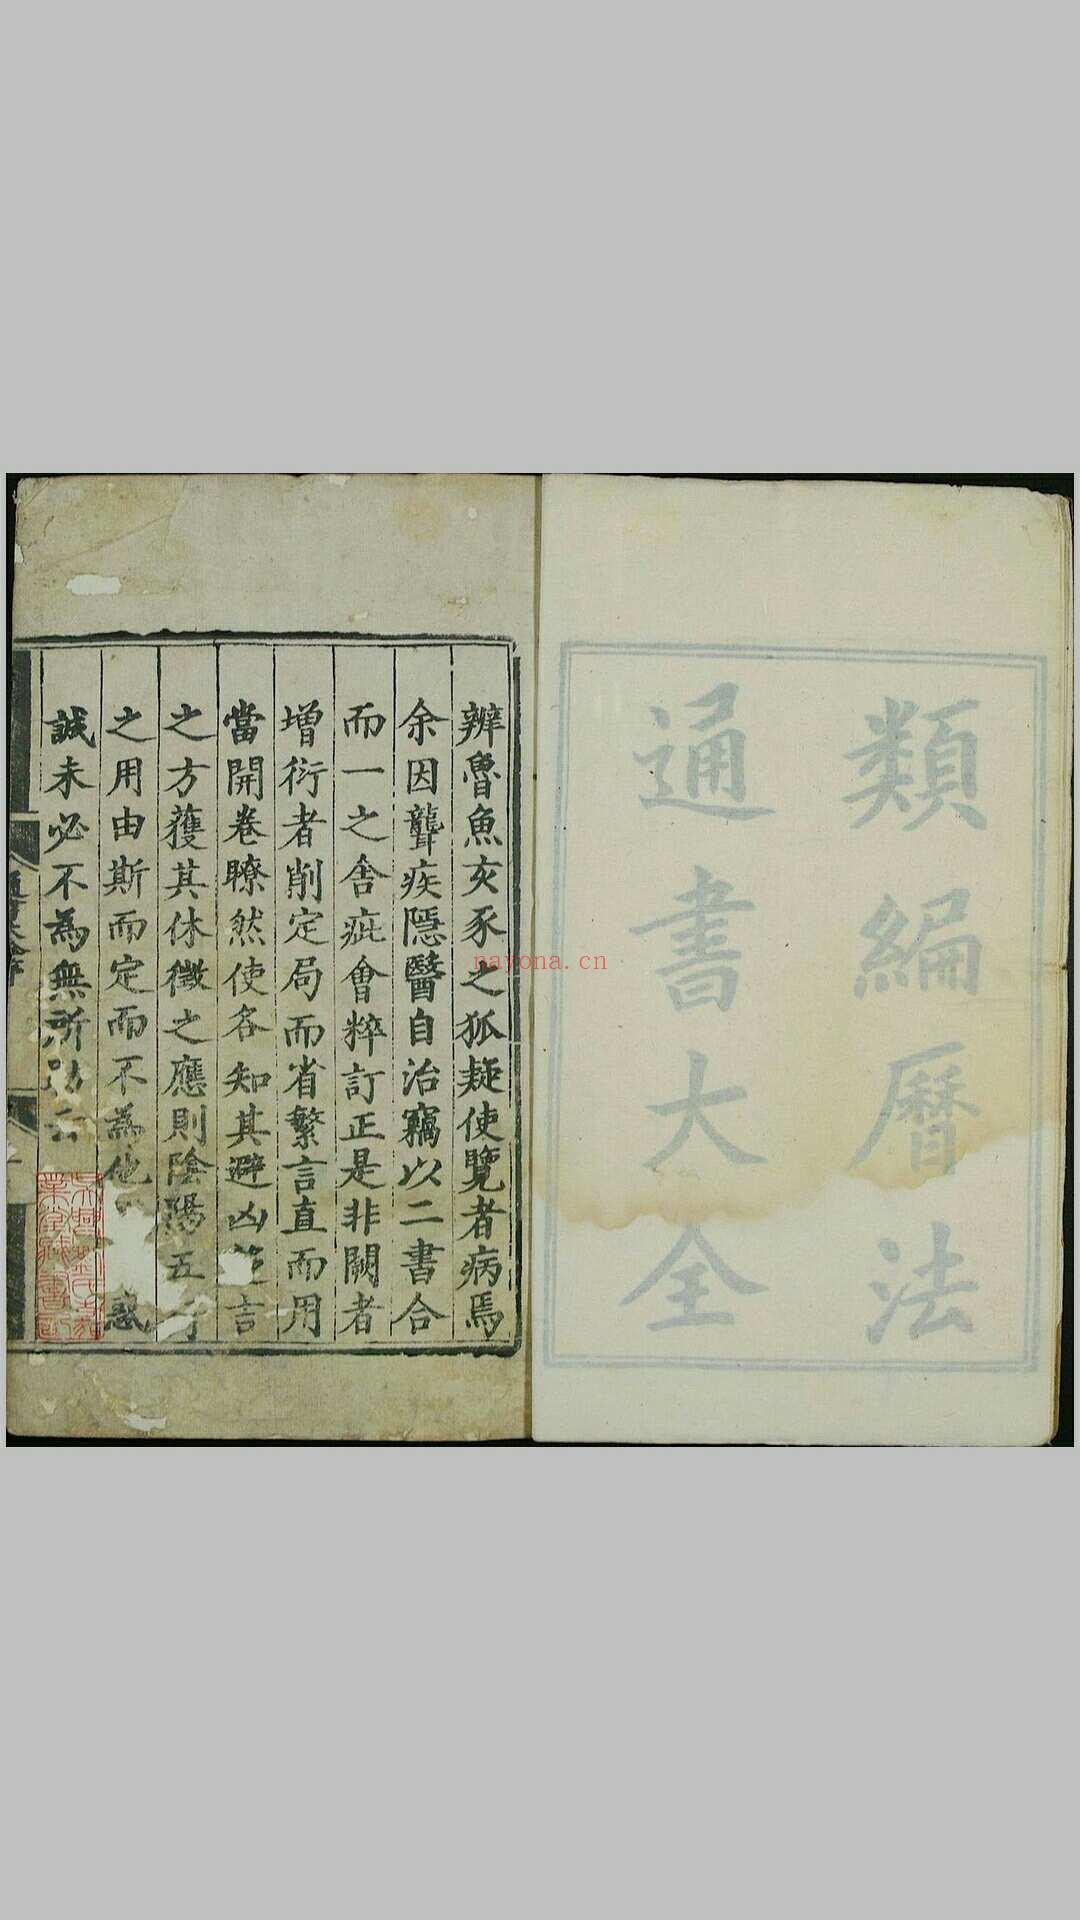 類編曆法
通書大全
辨魯魚亥豕之狐疑使覽者病焉
余因聾疾隱醫自治竊以二書合
而一之舍疵會粹訂正是非闕者
增衍者削定局而省繁言直而用
當開卷瞭然使各知其避凶言
之方獲其休徵之應則陰陽五行
之用由斯而定而不為他惑
誠未必不為無所助云
nayona.cn